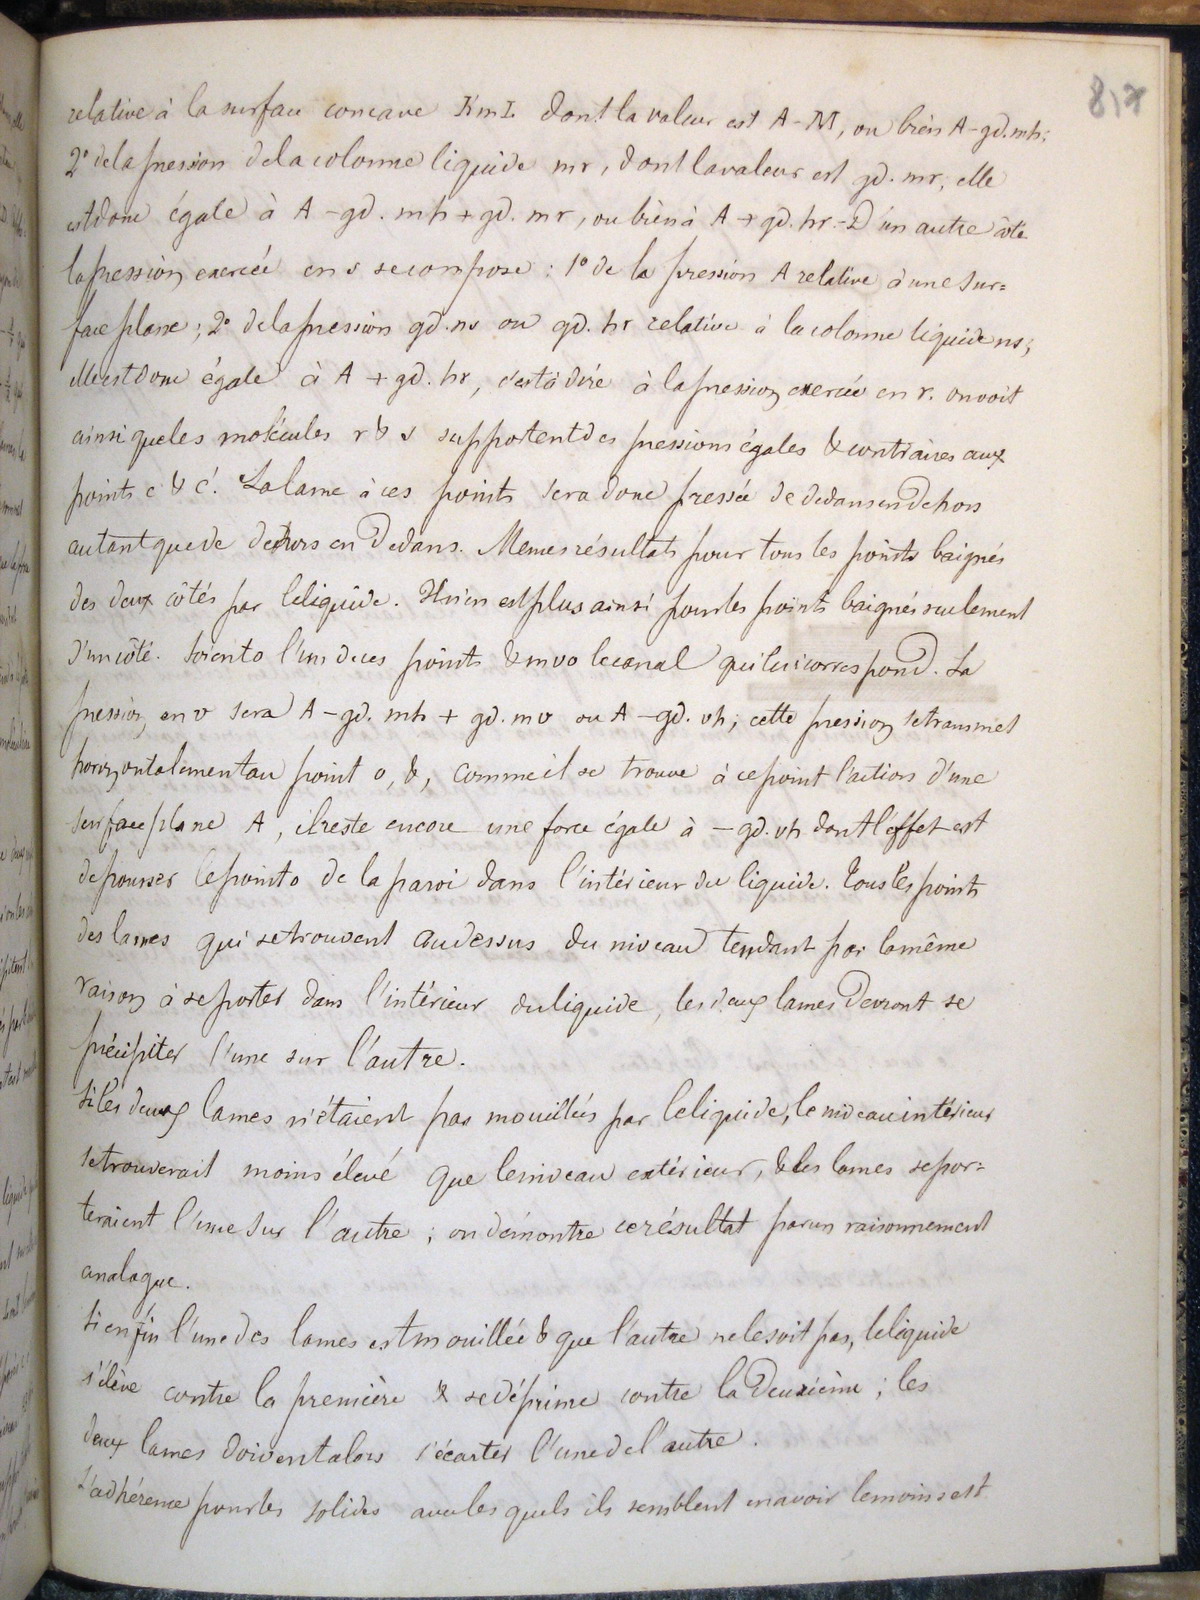 817
relative à la surface concave KmI dont la valeur est A - M, ou bien A - gd.mh;
2° de la pression de la colonne liquide mr, dont la valeur est gd. mr, elle
est donc égale à A - gd. mh + gd. mr, ou bien à A + gd. hr. - D'un autre côté
la pression exercée en s se compose : 1° de la pression A relative à une sur=
face plane ; 2° de la pression gd. ns ou gd. hr relative à la colonne liquide ns ;
elle est donc égale à A + gd. hr, c'est à dire à la pression exercée en r. on voit
ainsi que les molécules r & s supportent des pressions égales & contraires aux
points c & c'. La lame à ces points sera donc pressée de dedans en Dehors
autant que de dehors en Dedans. Memes résultats pour tous les points baignés
des deux côtés par le liquide. Il n'en est plus ainsi pour les points baignés seulement
d'un côté. Soient o l'un de ces points & mvo le canal qui lui correspond. La
pression en v sera A - gd. mh + gd. mv ou A - gd. vh ; cette pression se transmet
horizontalement au point o, &, comme il se trouve à ce point l'action d'une
surface plane A, il reste encore une force égale à - gd. vh dont l'effet est
de pousser le point o de la paroi dans l'intérieur du liquide. Tous les points
des lames qui se trouvent au dessus du niveau tendant par la même
raison à se porter dans l'intérieur du liquide, les deux lames Devront se
précipiter l'une sur l'autre.
Si les deux lames n'étaient pas mouillées par le liquide, le niveau intérieur
se trouverait moins élevé que le niveau extérieur, & les lames se por=
teraient l'une sur l'autre ; on démontre ce résultat par un raisonnement
analogue.
Si enfin l'une des lames est mouillée & que l'autre ne le soit pas, le liquide
s'élève contre la première & se déprime contre la Deuxième ; les
deux lames doivent alors s'écarter l'une de l'autre.
L'adhérence pour les solides avec les quels ils semblent en avoir le moins est